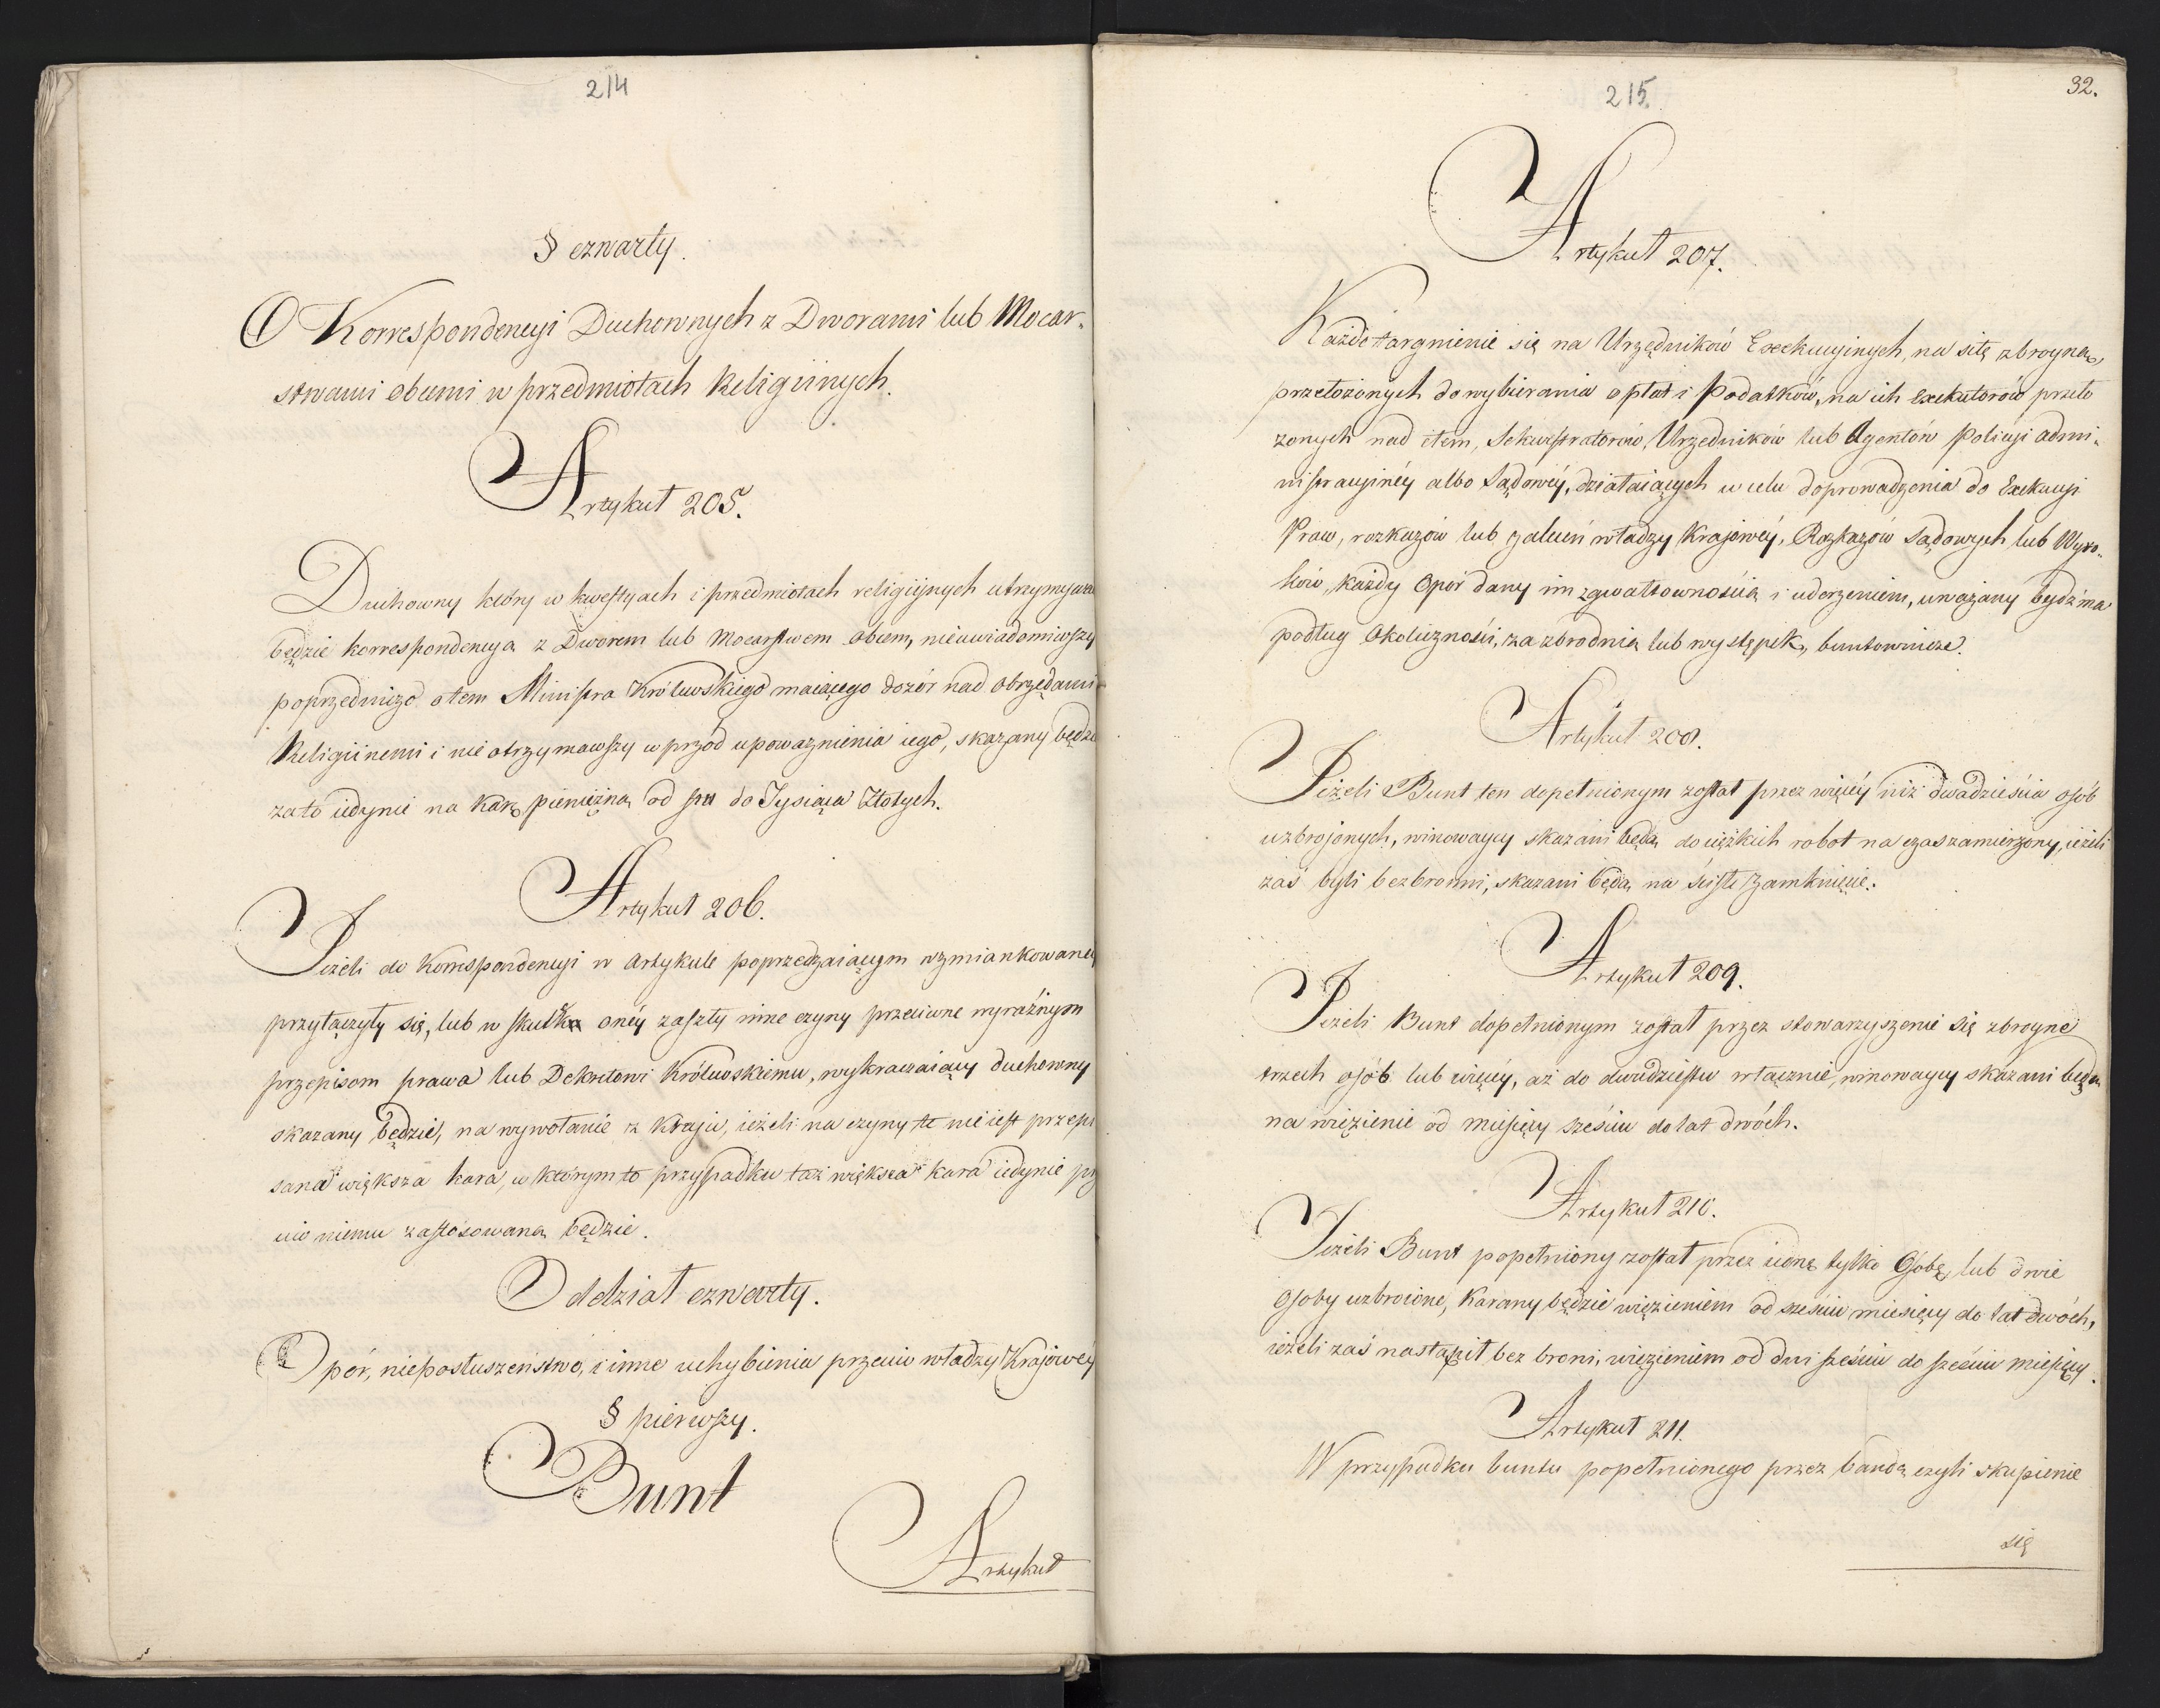 214
§ czwarty.
O Korrespondencyi Duchownych z Dworami lub Mocar-
stwami obcemi w przedmiotach Religiinych.
Artykuł 205.
Duchowny który w kwestyach i przedmiotach religiijnych utrzymywał
będzie korrespondencyą z Dworem lub Mocarstwem obcem, nieuwiadomiwszy
poprzedniczo o tem Ministra Królewskiego maiącego dozór nad obrzędami
Religiinemi i nie otrzymawszy w przód upoważnienia iego, skazany będzie
za to iedynie na karę pieniężną od stu do Tysiąca Złotych.
Artykuł 206.
Jeżeli do Korrespondencyi w Artykule poprzedzaiącym wzmiankowaney
przyłączyły się, lub w skutku oney zaszły inne czyny przeciwne wyraźnym
przepisom prawa lub Dekretowi Królewskiemu, wykraczaiący duchowny
skazany będzie, na wywołanie z Kraju, ieżeli na czyny te nie iest przepi
sana większa kara, w którym to przypadku taż większa kara iedynie prze
ciw niemu zastosowaną będzie.
Oddział czwarty.
Opór, nieposłuszeństwo, i inne uchybienia przeciw władzy Krajowey
§ pierwszy.
Bunt
Artykuł
215
32.
Artykuł 207.
Każde targnienie się na Urzędników Exekucyinych, na siłę zbroyną,
przełożonych do wybierania opłat i Podatków, na ich Exekutorów przeło
żonych nad cłem, Sekwestratorów, Urzędników lub Agentów Policyi admi-
nistracyiney albo Sądowey, działaiących w celu doprowadzenia do Exekucyi
Praw, rozkazów lub zaleceń władzy Krajowey, Rozkazów Sądowych lub Wyro-
ków, każdy Opór dany im z gwałtownością i uderzeniem, uważany bydź ma
podług Okoliczności, za zbrodnią lub występek, buntownicze.
Artykuł 208.
Jeżeli Bunt ten dopełnionym został przez więcey niż dwadzieścia osób
uzbrojonych, winowaycy skazani będą do ciężkich robot na czas zamierzony, ieżeli
zaś byli bezbronni, skazani będą na ścisłe zamknięcie.
Artykuł 209.
Jeżeli Bunt dopełnionym został przez stowarzyszenie się zbroyne
trzech osób lub więcey, aż do dwudziestu włącznie, winowaycy skazani będą
na więzienie od miesięcy sześciu do lat dwóch.
Artykuł 210.
Jeżeli Bunt popełniony został przez iedną tylko Osobę, lub dwie
Osoby uzbroione, karany będzie więzieniem od sześciu miesięcy do lat dwóch,
ieżeli zaś nastąpił bez broni, więzieniem od dni sześciu do sześciu miesięcy.
Artykuł 211.
W przypadku buntu popełnionego przez bandę czyli skupienie
się